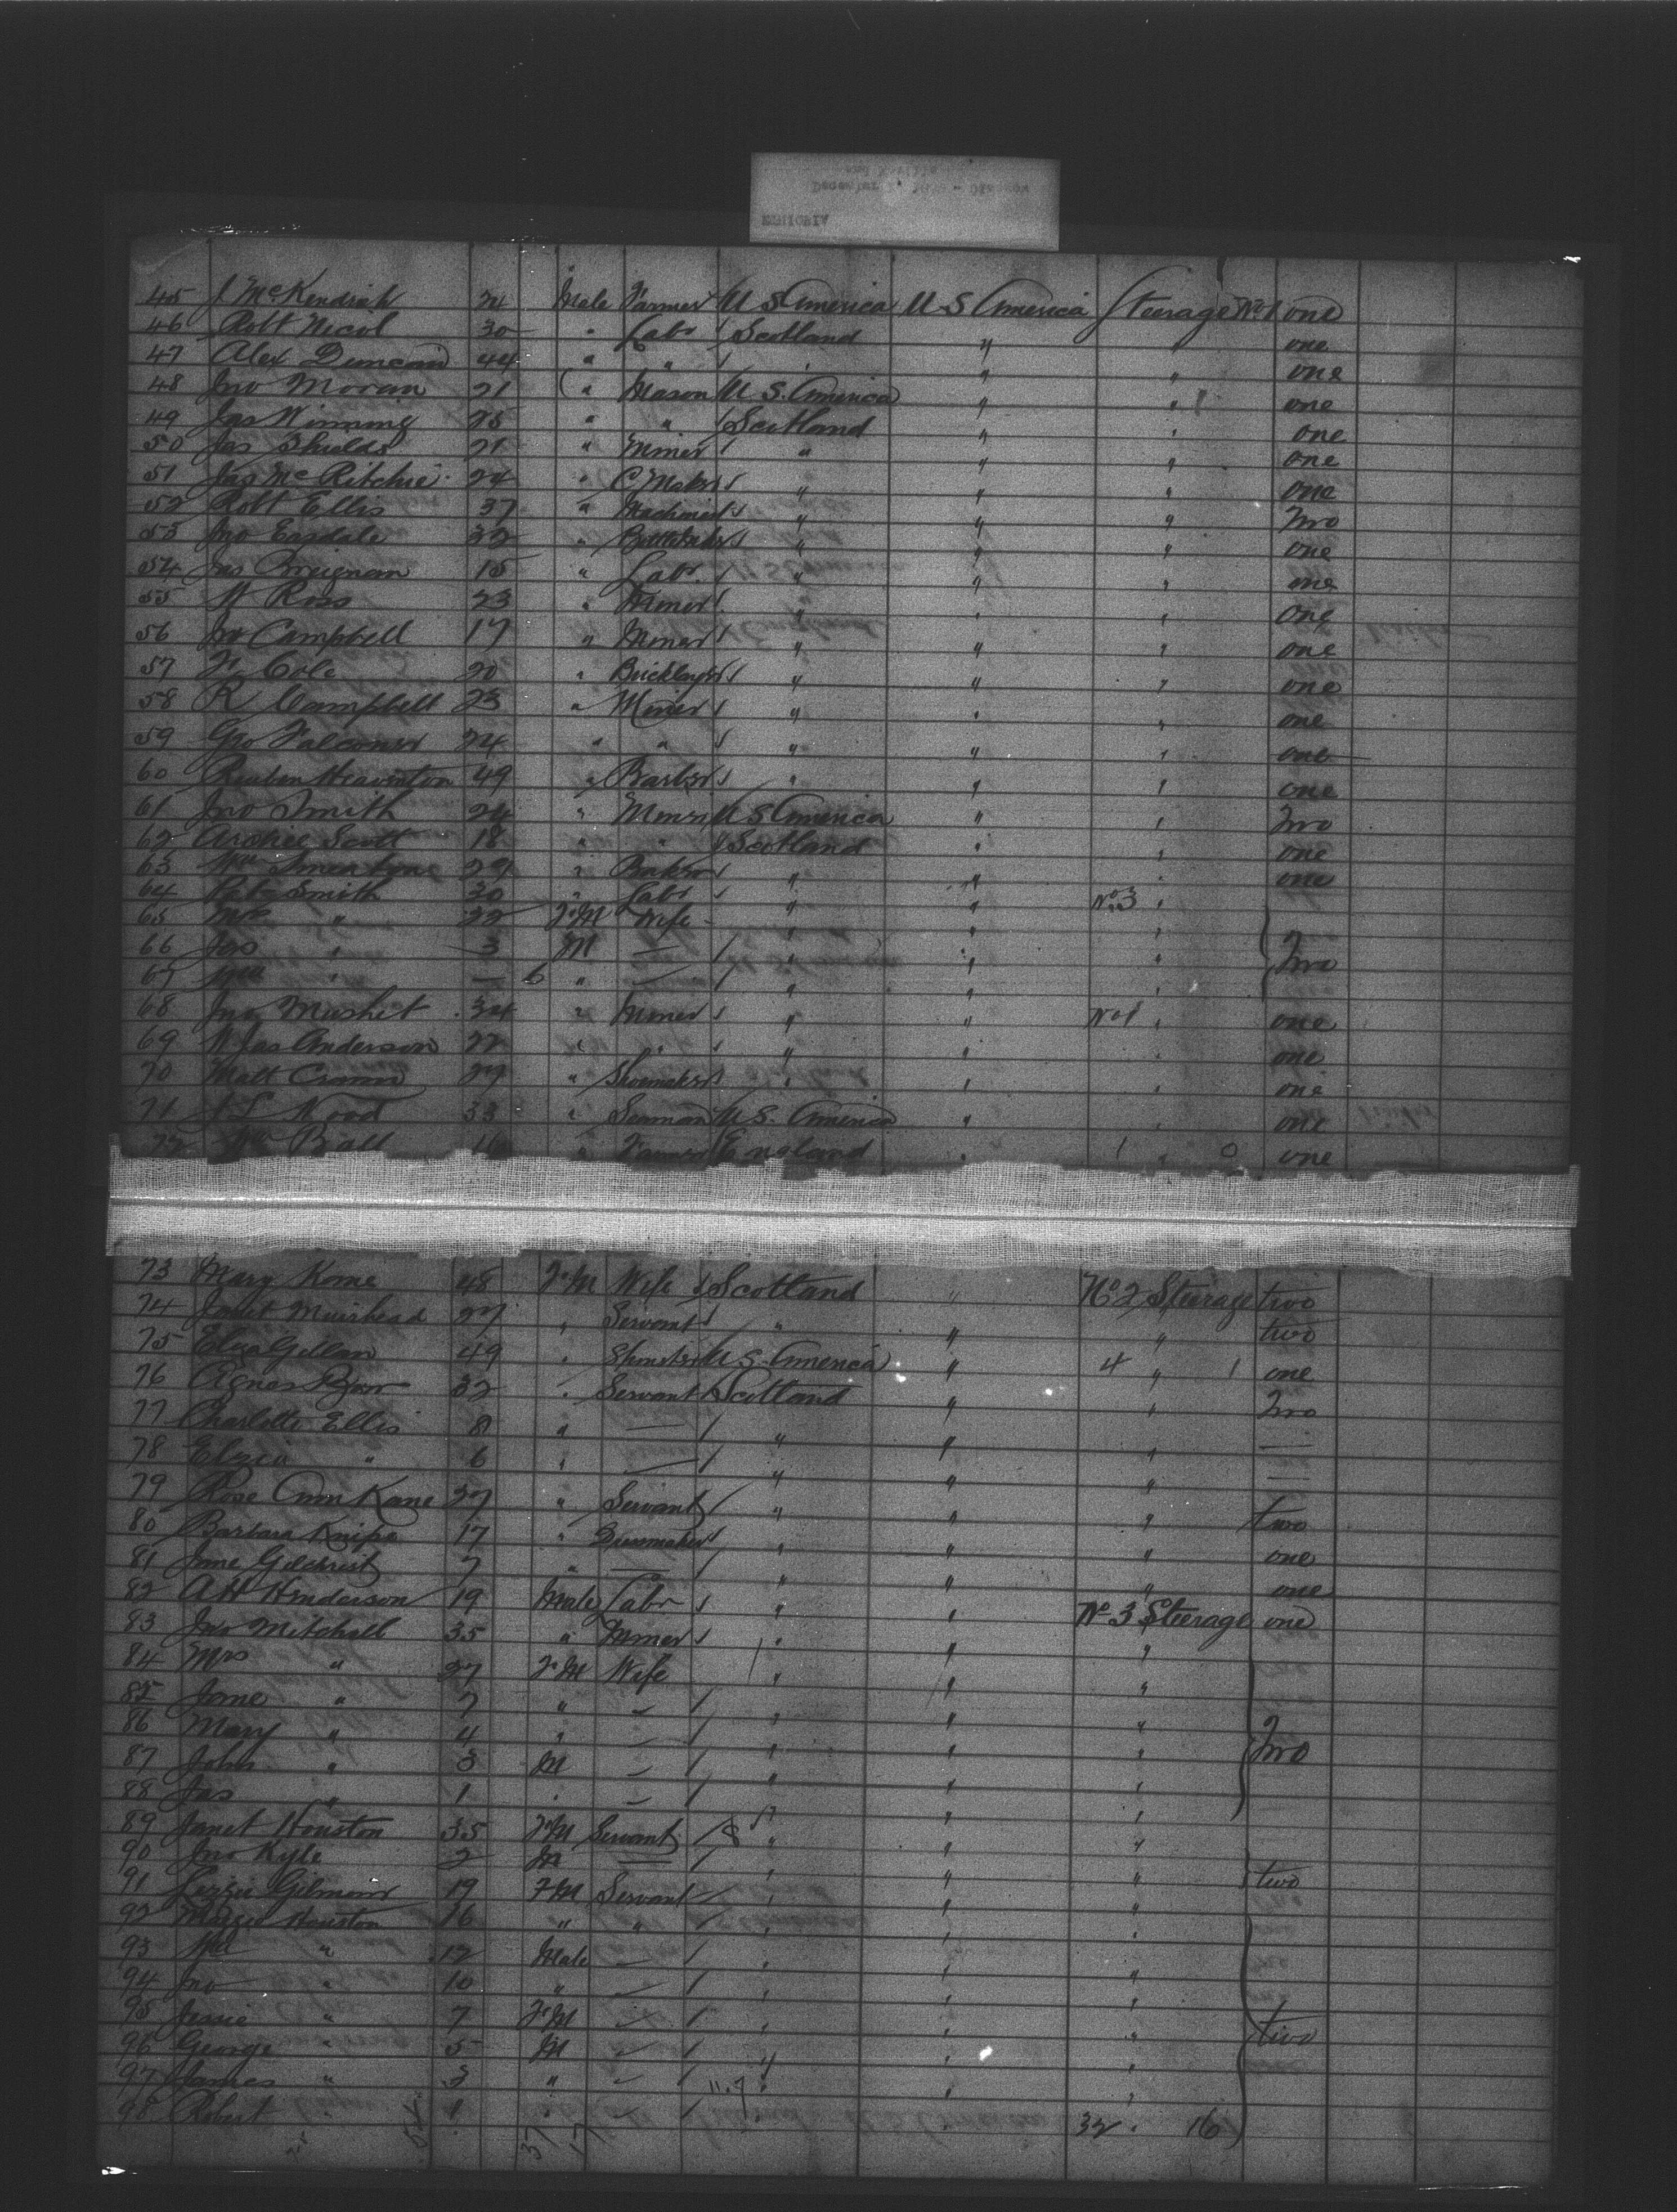 45 J McKendrick 24 Male Farmer U S America U S America Steerage No 1 one
46 Robt Nicol 30 " Labr Scotland " " one
47 Alex Duncan 44 " " " " one
48 Jno Moran 21 " Mason U. S. America " " one
49 Jas 25 " " Scotland " " one
50 Jas Shields 21 " Miner " " " one
51 Jas McRitchie 24 " C Maker " " " one
52 Robt Ellis 37 " Machinist " " " Two
53 Jno Easdale 32 " " " " one
54 Jas 15 " Labr. " " " one
55 W Ross 23 " Miner " " " one
56 Jno Campbell 17 " Miner " " " one
57 Cole 20 " Bricklayer " " " one
58 R Campbell 23 " Miner " " " one
59 Geo Falconer 24 " " " " " one
60 Reuben Heaventon 49 " Barber " " " one
61 Jno Smith 24 " Miner U S America " " Two
62 Archie Scott 18 " " Scotland " " one
63 Wm 29 " Baker " " " one
64 Smith 30 " Labr " " No 3 "
65 Mrs " 32 F M Wife " " "
66 Jas " 3 M — " " " Two
67 Wm " — 6 " — " " "
68 Jno Mushet 34 " Miner " " No 1 " one
69 W Jas Anderson 22 " " " " " one
70 Matt 27 " Shoemaker " " " one
71 Wood 33 " Seaman U. S. America " " one
72 Wm Ball " Farmer England " " one
73 Mary Kome 48 F M Wife Scotland " No 2 Steerage two
74 Janet Muirhead 27 " Servant " " " two
75 Eliza Gillan 49 " U. S. America " 4 " 1 one
76 Agnes 32 " Servant Scotland " " Two
77 Charlotte Ellis 8 " — " " " —
78 " 6 " — " " " —
79 Rose Ann Kane 27 " Servant " " " two
80 Barbara Knipe 17 " Dressmaker " " " one
81 Jane Gilchrist 7 " — " " " one
82 A H Henderson 19 Male Labr " " No 3 Steerage one
83 Jno Mitchell 35 " Miner " " "
84 Mrs " 27 F M Wife " " "
85 Jane " 7 " — " " "
86 Mary " 4 " — " " " Two
87 John " 3 M — " " "
88 Jas " 1 " — " " "
89 Janet Houston 35 F M Servant " " "
90 Jno Kyle 2 M — " " " two
91 Lizzie Gilmour 19 F M Servant " " "
92 Maggie Houston 16 " " " " "
93 " 12 Male — " " "
94 Jno " 10 " — " " "
95 Jessie " 7 F M — " " " two
96 George " 5 M — " " "
97 James " 3 " — " " "
98 Robert " 1 " — " " 32 16